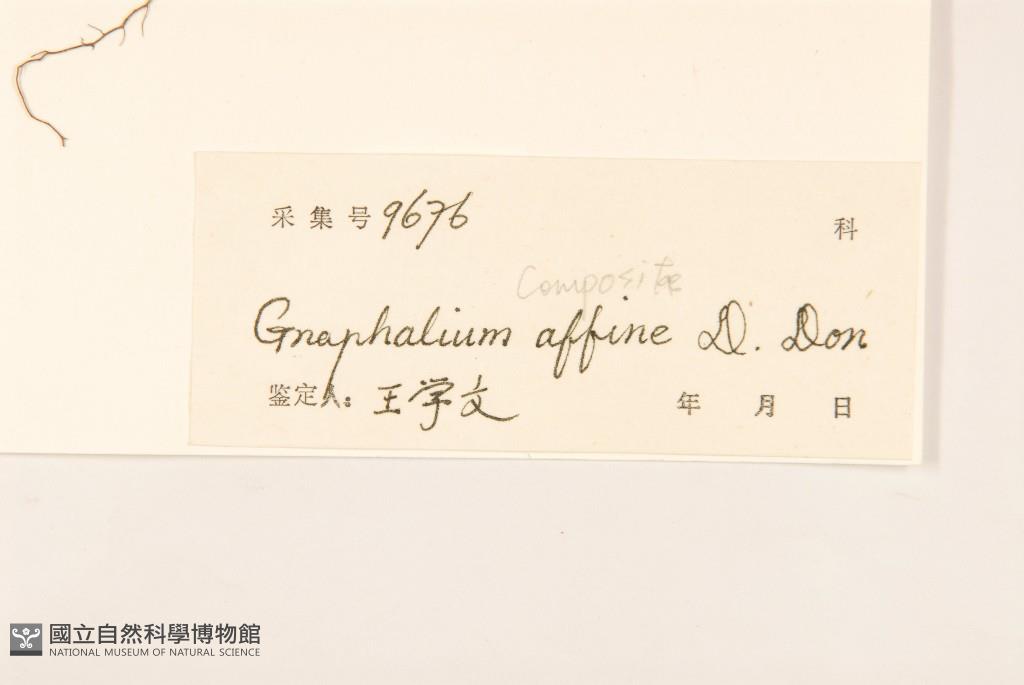 采集号 9676 科
Compositae
Gnaphalium affine D. Don
鉴定人: 王学文 年 月 日
國立自然科學博物館
NATIONAL MUSEUM OF NATURAL SCIENCE